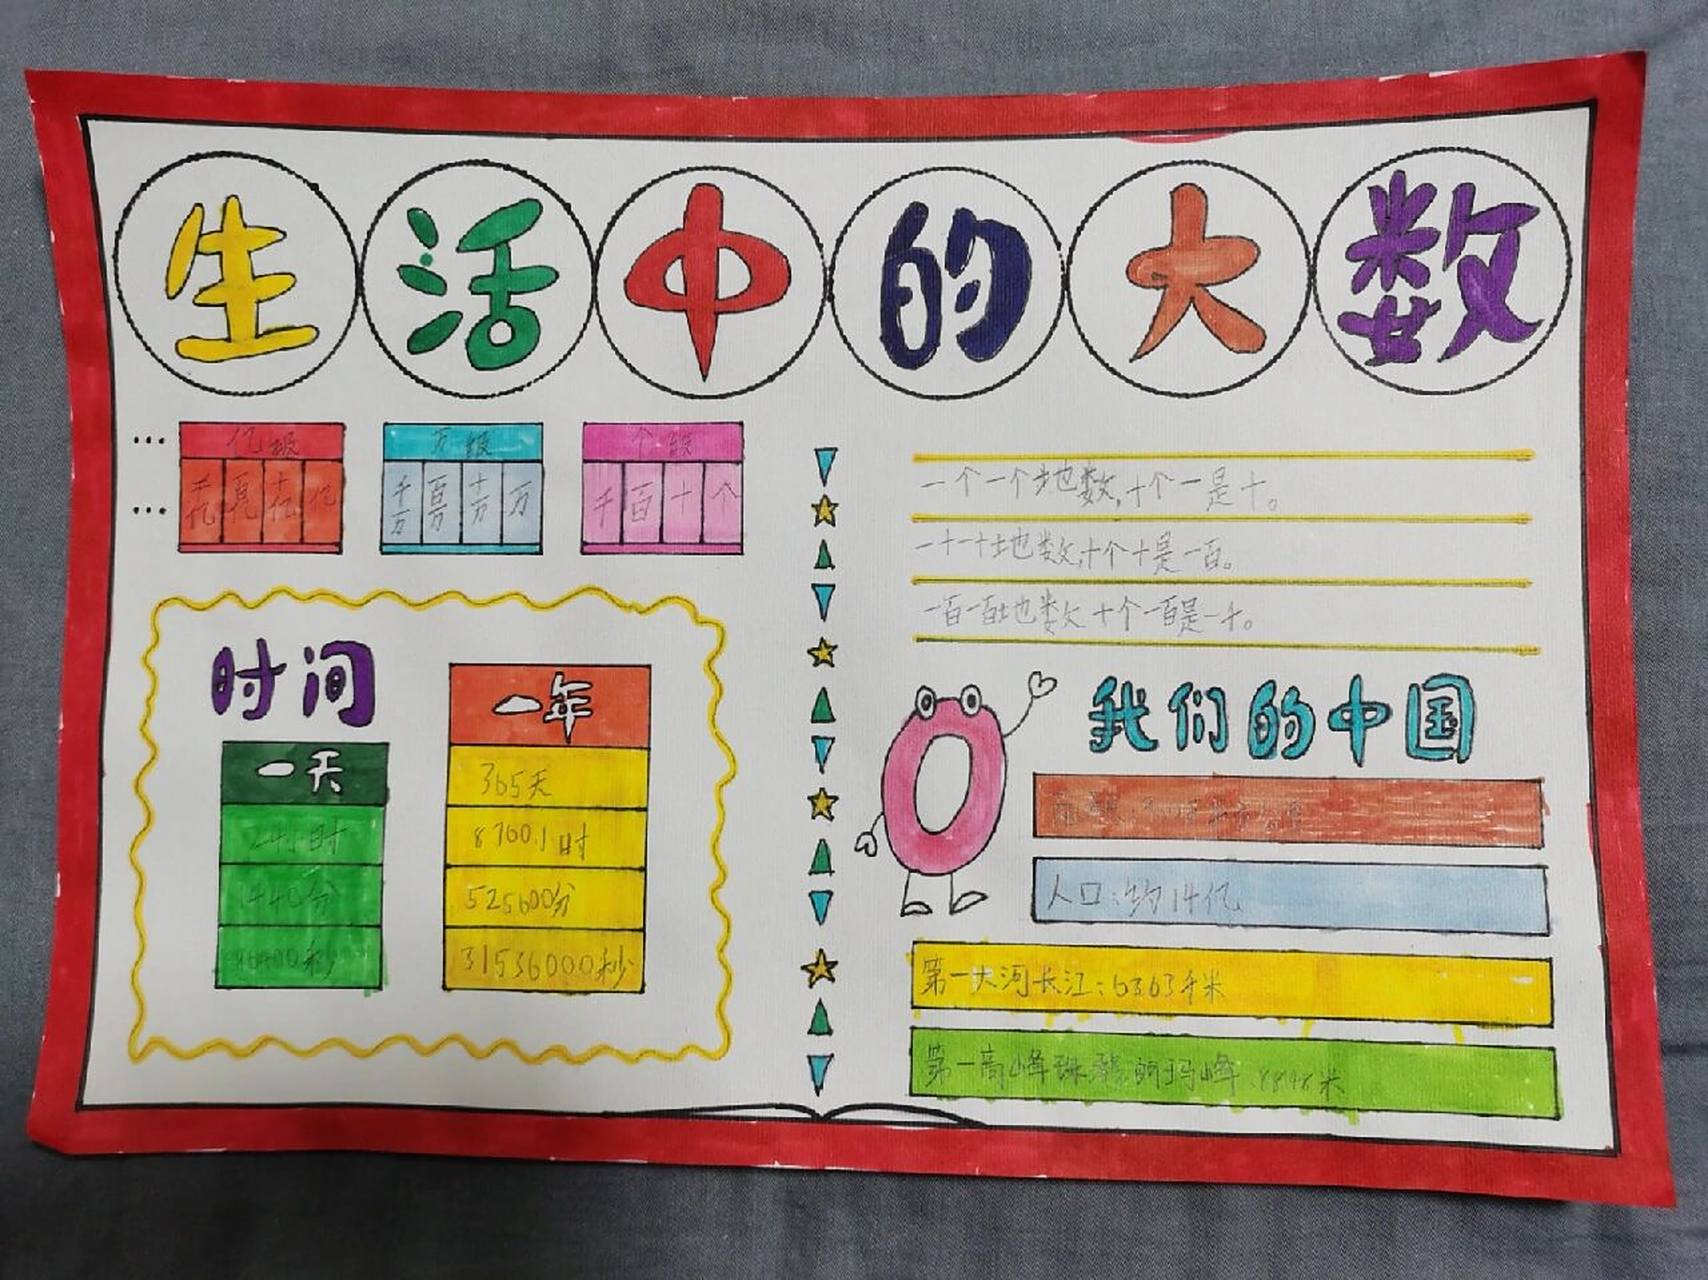 生活中的大数
… 亿级 万级 个级
… 千亿 百亿 十亿 亿 千万 百万 十万 万 千 百 十 个
时间
一天
24小时
1440分
86400秒
一年
365天
8760小时
525600分
31536000秒
一个一个地数,十个一是十。
一十一十地数,十个十是一百。
一百一百地数 十个一百是一千。
我们的中国
人口:约14亿
第一大河长江:6363千米
第一高峰珠穆朗玛峰 8848米